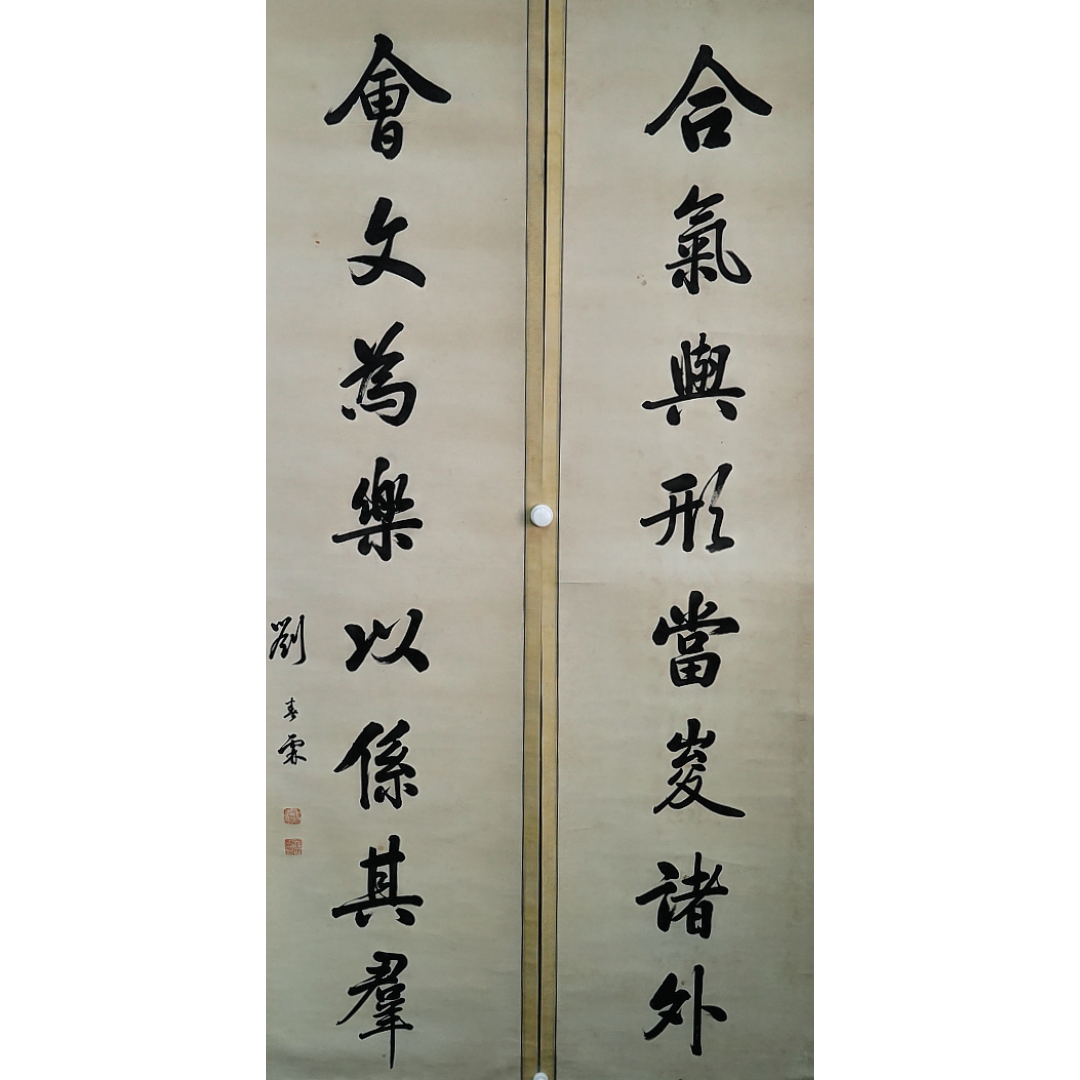 合氣與形當發諸外
會文為樂以係其羣
劉春霖